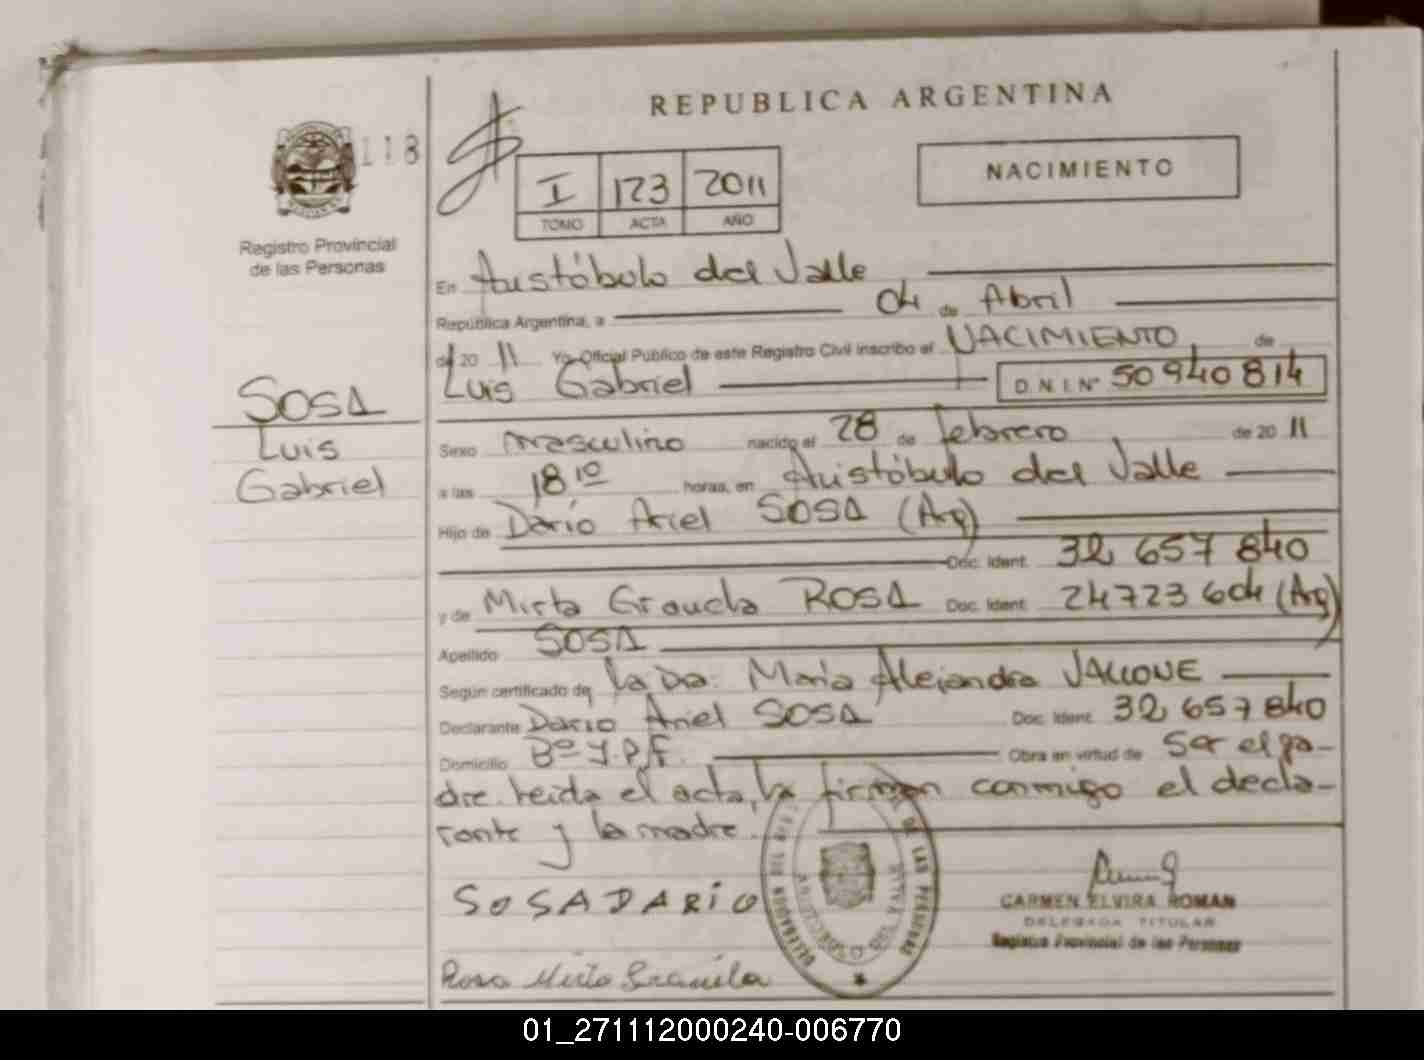 REPUBLICA ARGENTINA
118
NACIMIENTO
I 123 2011
TOMO ACTA AÑO
Registro Provincial
de las Personas
En Aristóbulo del Valle
República Argentina, a 04 de Abril
de 20 11 Yo Oficial Público de este Registro Civil inscribo el NACIMIENTO de
Luis Gabriel D.N.I. Nº 50940814
SOSA
Luis
Gabriel
Sexo masculino nacido el 28 de febrero de 20 11
a las 18 10 horas, en Aristóbulo del Valle
Hijo de Dario Ariel SOSA (Arg)
Doc. Ident. 32 657 840
y de Mirta Graciela ROSA Doc. Ident. 24723604 (Arg)
Apellido SOSA
Según certificado de la Dra. María Alejandra
Declarante Dario Ariel SOSA Doc. Ident. 32 657 840
Domicilio Bº Y.P.F. Obra en virtud de Ser el pa-
dre. Leída el acta, la firman conmigo el decla-
rante y la madre.
SOSA DARIO
CARMEN ELVIRA ROMAN
DELEGADA TITULAR
Registro Provincial de las Personas
Rosa Mirta Graciela
01_271112000240-006770